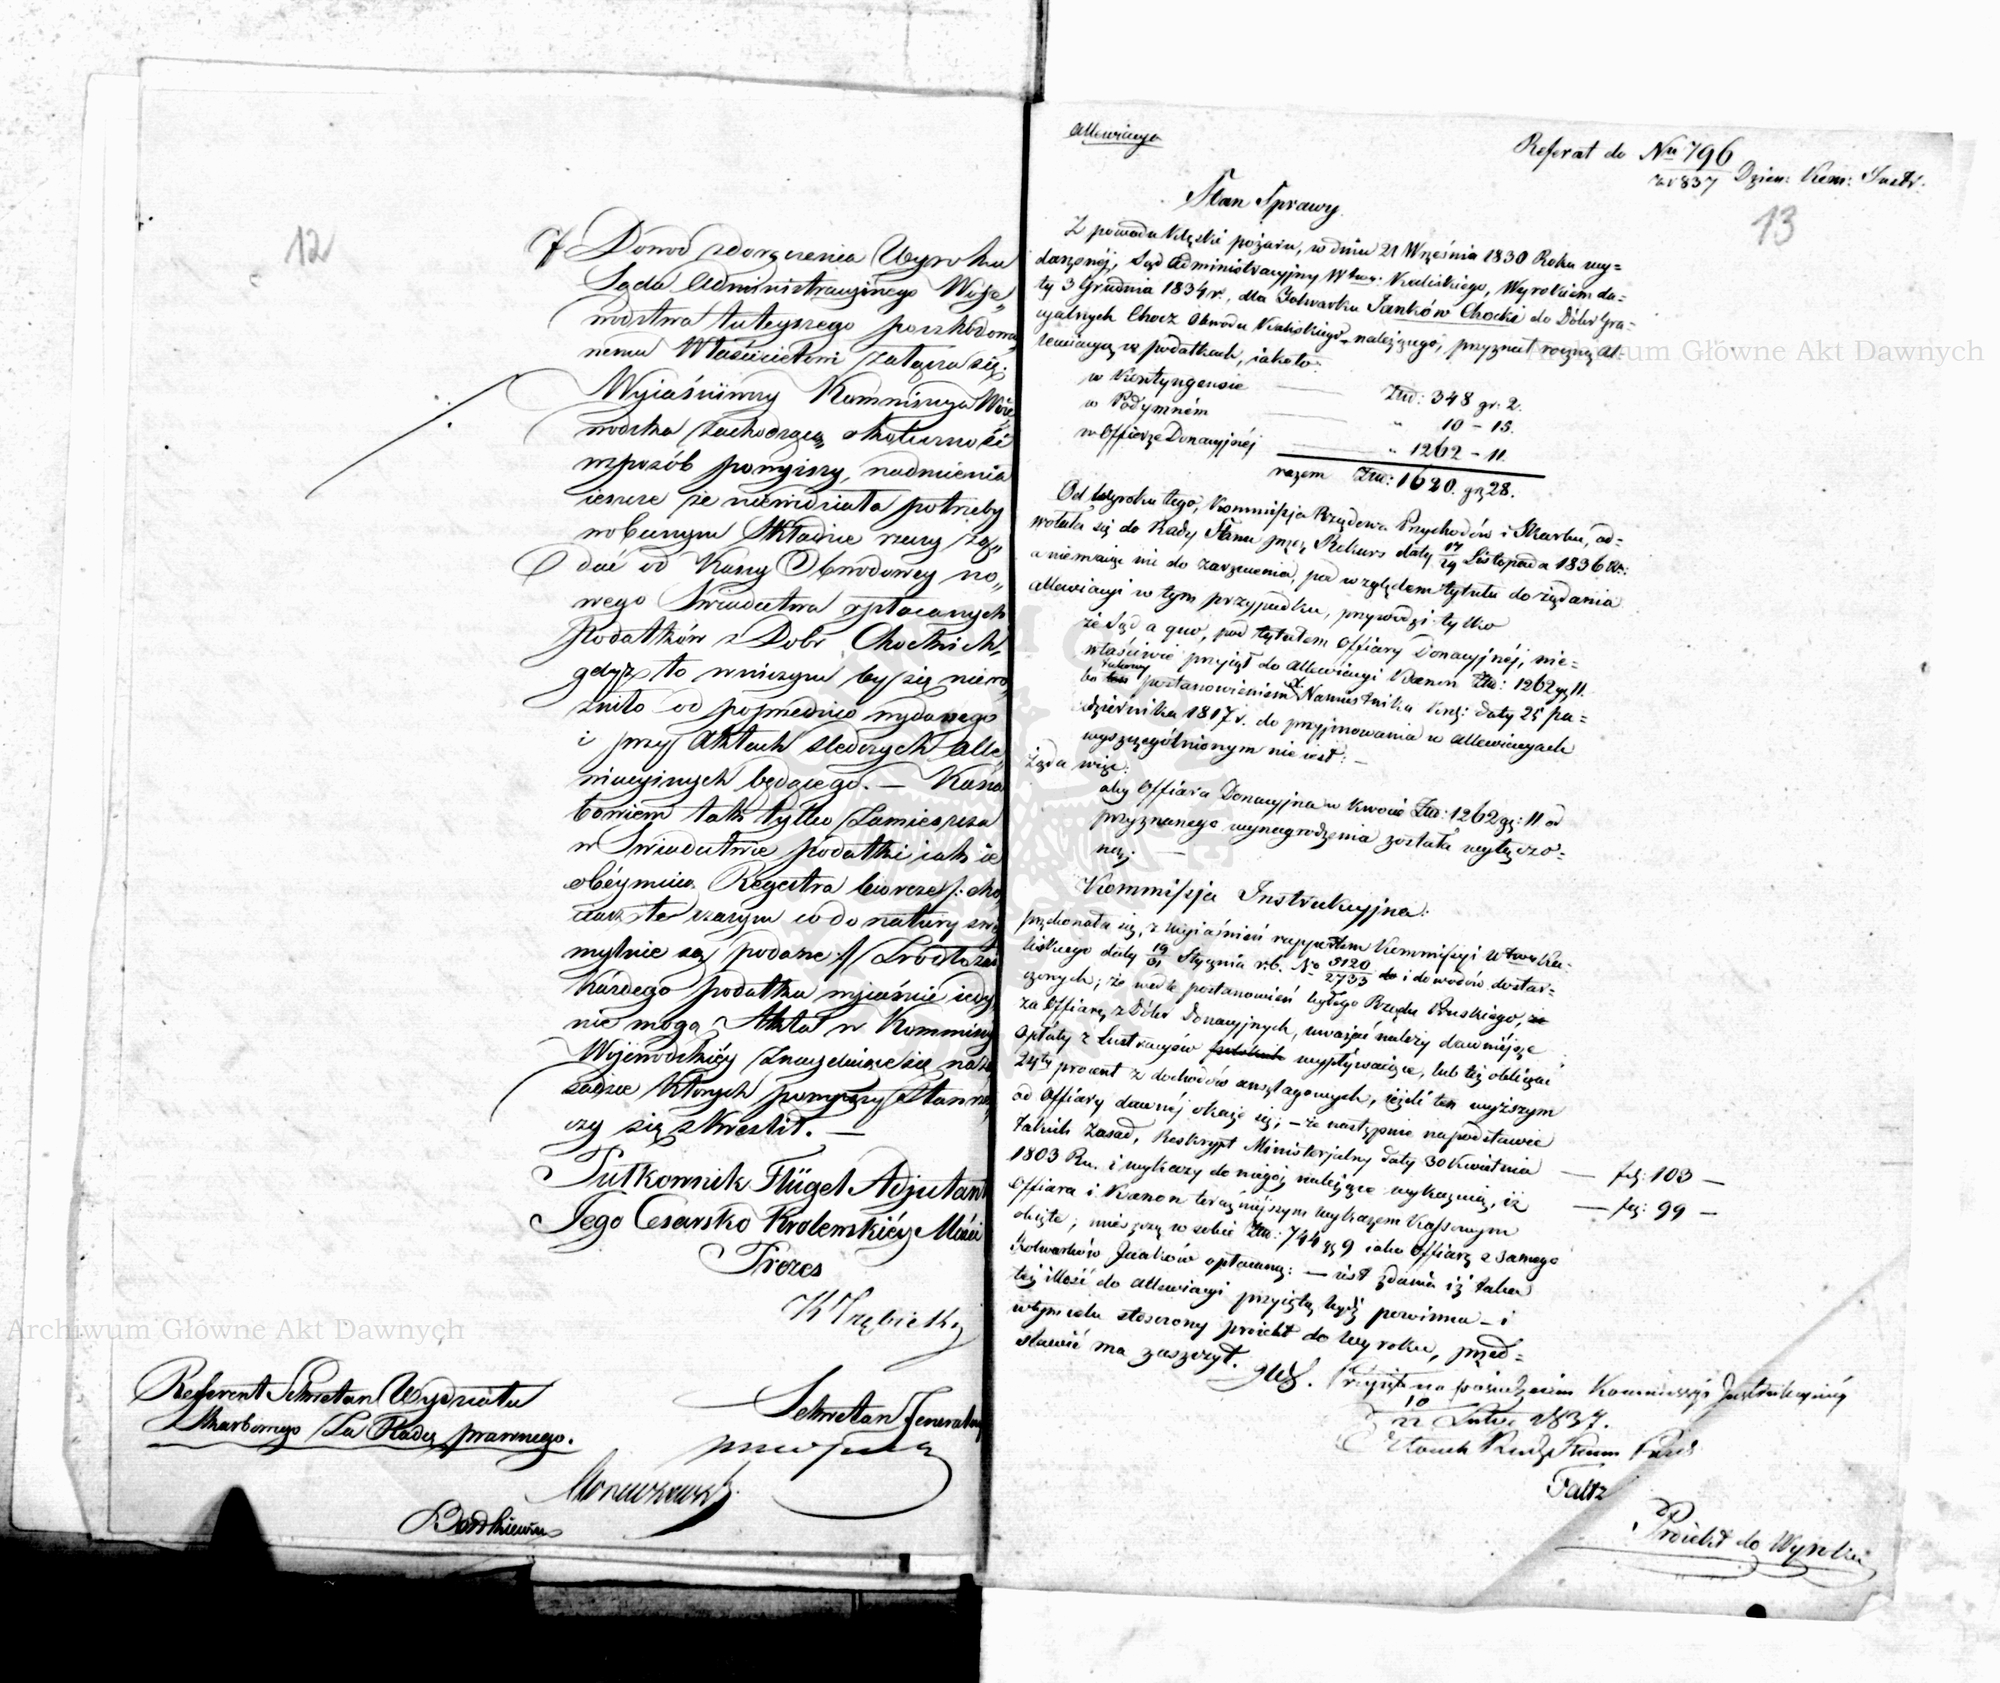 12
f Dowod zdoręczenia Wyroku
Sądu Administracyjnego Woje„
wodztwa tuteyszego poszkodowa„
nemu Właścicielowi załącza się.
Wyiaśniwszy Kommissya Woje
wodzka zachodzącą okoliczność
wsposób powyższy, nadmienia
ieszcze że niewidziała potrzeby
wobecnym składzie rzeczy żą„
dać od Kassy Obwodowey no„
wego Świadectwa opłacanych
Podatków z Dobr Chockich,
gdyż to wniczym by się niero„
żniło od poprzednio wydanego
i przy Aktach śledczych alle„
wiacyinych będącego. — Kassa
bowiem tak tylko zamieszcza
w Świadectwie podatki iak ie
obéymuią Regestra biercze /: cho„
ciaż te czasem co do natury swéy
mylnie są podane :/ Źródło zaś
każdego podatku wyiaśnić iedy„
nie mogą Akta w Kommissyi
Wojewodzkiéy znayduiące się na za„
sadzie których powyższy stan rze„
czy się skreślił. —
Pułkownik Flügel Adjutant
Jego Cesarsko Królewskiéy Mości
Prezes
K Trębicki
Referent Sekretarz Wydziału
Skarbowego Za Radcę prawnego.
Sekretarz Jeneralny
Archiwum Główne Akt Dawnych
Allewiacya
Referat do Nru 796
za 1837 Dzien: Kom: Instr.
13
Stan Sprawy
Z powodu klęski pożaru, w dniu 21 Września 1830 Roku wy=
darzonéj, Sąd Administracyjny Wtwa: Kaliskiego, Wyrokiem da=
ty 3 Grudnia 1834 r., dla Folwarku Janków Chocki do Dóbr Gra=
cyalnych Chocz Obwodu Kaliskiego należącego, przyznał roczną al=
lewiacyą w podatkach, iakoto:
w Kontyngensie — Złp: 348 gr. 2.
w Podymném — „ 10 – 15.
w Offierze Donacyjnéj — „ 1262 – 11.
razem Złp: 1620. gr 28.
Od Wyroku tego, Kommissja Rządowa Przychodów i Skarbu, od=
wołała się do Rady Stanu przez Rekurs daty 17/29 Listopada 1836 Rn:
a niemaiąc nic do zarzucenia, pod względem tytułu do żądania
allewiacyi w tym przypadku, przywodzi tylko
że Sąd a quo, pod tytułem Offiary Donacyjnéj, nie=
właściwie przyiął do allewiacyi Kanon Złp: 1262 gr 11.
bo takowy postanowieniem X. Namiestnika Król: daty 25 Pa=
ździernika 1817 r. do przyjmowania w allewiacyach
wyszczególnionym nie iest. —
Żąda więc:
aby Offiara Donacyjna w kwocie Złp: 1262 gr: 11 od
przyznanego wynagrodzenia została wyłączo=
ną. —
Kommissja Instrukcyjna:
przekonała się, z wyiaśnień rapportem Kommissyi Wtwa Ka=
liskiego daty 19/31 Stycznia r.b. No 3120/2733 i dowodów dostar=
czonych; że wedle postanowień byłego Rządu Pruskiego,
za Offiarę z Dóbr Donacyjnych, uważać należy dawniéjsze
opłaty z Lustracyów wypływaiące, lub też obliczać
24ty procent z dochodów anszlagowych, ieżeli ten wyższym
od Offiary dawnéj okaże się; — że następnie na podstawie
takich zasad, Reskrypt Ministerjalny daty 30 Kwietnia
1803 Rn. i wykazy do niegoż należące wykazuią, iż — fol: 103 —
Offiara i Kanon teraźniejszym wykazem Kassowym — fol: 99 —
obięte, mieszczą w sobie Złp: 744 gr 9 iako Offiarę z samego
Folwarków Janków opłacaną: — iest zdania iż taka
też ilość do allewiacyi przyiętą bydź powinna — i
wtym celu stosowny proiekt do Wyroku, przed=
stawić ma zaszczyt.
Przyięto na posiedzeniu Kommissyi Instrukcyinéy
d 10/22 Lutego 1837.
Członek Rady Stanu
Faltz
Proiekt do Wyroku
Archiwum Główne Akt Dawnych